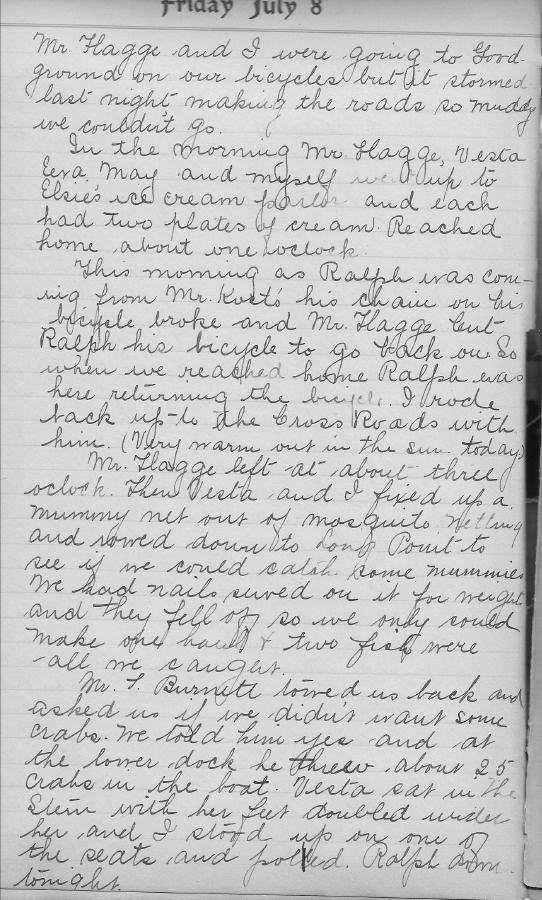 Friday July 8
Mr. Flagge and I were going to Good-
ground on our bicycles but it stormed
last night making the roads so muddy
we couldn't go.
In the morning Mr. Flagge, Vesta
Eva, May and myself went up to
Elsie's ice cream parlor and each
had two plates of cream. Reached
home about one o'clock.
This morning as Ralph was com-
ing from Mr. Kost's his chain on his
bicycle broke and Mr. Flagge lent
Ralph his bicycle to go back on. So
when we reached home Ralph was
here returning the bicycle. I rode
back up to the Cross Roads with
him. (Very warm out in the sun today)
Mr. Flagge left at about three
oclock. Then Vesta and I fixed up a
mummy net out of mosquito netting
and rowed down to Long Point to
see if we could catch some mummies
We had nails sewed on it for weight
and they fell off so we only could
make one haul & two fish were
all we caught.
Mr. T. Burnett towed us back and
asked us if we didn't want some
crabs. We told him yes and at
the lower dock he threw about 25
crabs in the boat. Vesta sat in the
Stern with her feet doubled under
her and I stood up on one of
the seats and polled. Ralph down
tonight.